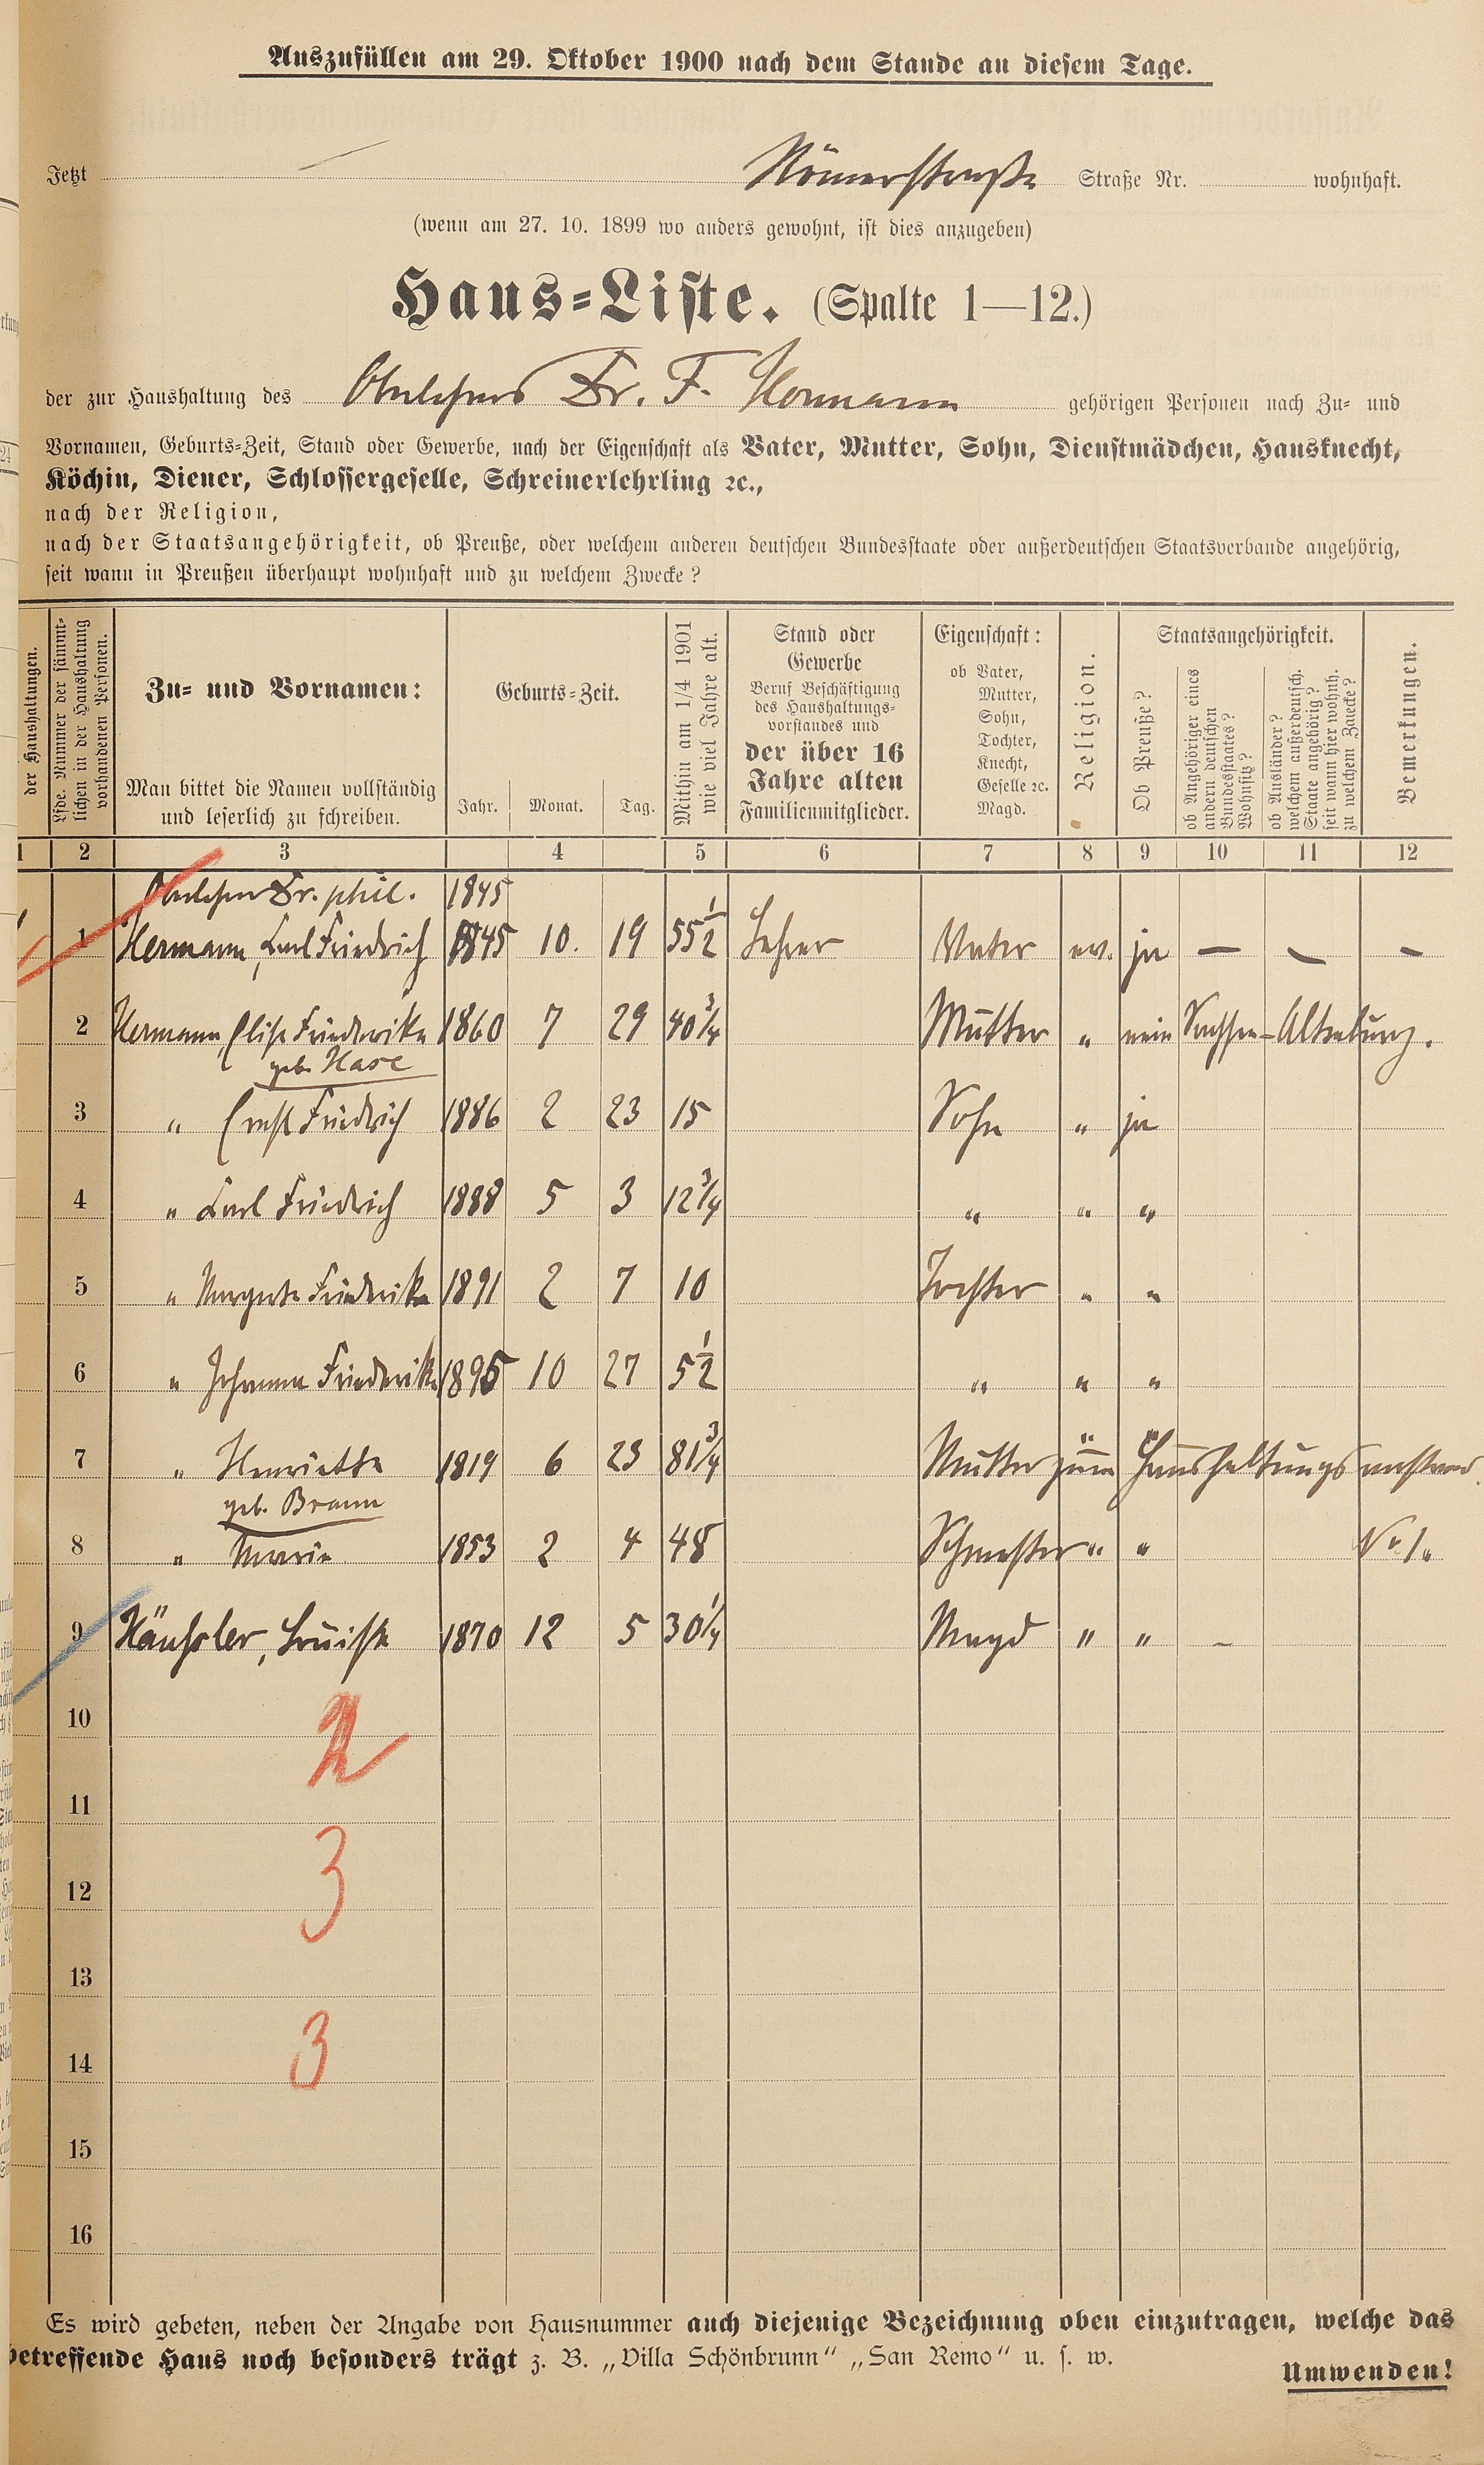 Auszufüllen am 29. Oktober 1900 nach dem Stande an diesem Tage.
Jetzt Römerstraße Straße Nr. wohnhaft.
(wenn am 27. 10. 1899 wo anders gewohnt, ist dies anzugeben)
Haus-Liste. (Spalte 1—12.)
der zur Haushaltung des Oberlehrers Dr. F. Hermann gehörigen Personen nach Zu- und
Vornamen, Geburts-Zeit, Stand oder Gewerbe, nach der Eigenschaft als Vater, Mutter, Sohn, Dienstmädchen, Hausknecht,
Köchin, Diener, Schlossergeselle, Schreinerlehrling ꝛc.,
nach der Religion,
nach der Staatsangehörigkeit, ob Preuße, oder welchem anderen deutschen Bundesstaate oder außerdeutschen Staatsverbande angehörig,
seit wann in Preußen überhaupt wohnhaft und zu welchem Zwecke?
der Haushaltungen.
Lfde. Nummer der sämmt-
lichen in der Haushaltung
vorhandenen Personen.
Zu- und Vornamen:
Man bittet die Namen vollständig
und leserlich zu schreiben.
Geburts-Zeit.
Jahr. Monat. Tag.
Mithin am 1/4 1901
wie viel Jahre alt.
Stand oder
Gewerbe
Beruf Beschäftigung
des Haushaltungs-
vorstandes und
der über 16
Jahre alten
Familienmitglieder.
Eigenschaft:
ob Vater,
Mutter,
Sohn,
Tochter,
Knecht,
Geselle ꝛc.
Magd.
Religion.
Staatsangehörigkeit.
Ob Preuße?
ob Angehöriger eines
andern deutschen
Bundesstaates?
Wohnsitz?
ob Ausländer?
welchem außerdeutsch.
Staate angehörig?
seit wann hier wohnh.
zu welchem Zwecke?
Bemerkungen.
1 2 3 4 5 6 7 8 9 10 11 12
Oberlehrer Dr. phil. 1845
1 Hermann, Karl Friedrich 1845 10. 19 55 1/2 Lehrer Vater ev. ja — — —
2 Hermann, Elise Friederike 1860 7 29 40 3/4 Mutter " nein Sachsen-Altenburg.
geb. Hase
3 " Ernst Friedrich 1886 2 23 15 Sohn " ja
4 " Karl Friedrich 1888 5 3 12 3/4 " " "
5 " Margarete Friederike 1891 2 7 10 Tochter " "
6 " Johanna Friederike 1895 10 27 5 1/2 " " "
7 " Henriette 1819 6 23 81 3/4 Mutter zum Haushaltungsvorstand
geb. Braun
8 " Maria 1853 2 4 48 Schwester " " Nr. 1.
9 Häußler, Luise 1870 12 5 30 1/4 Magd " " –
10
2
11
12
3
13
14
3
15
16
Es wird gebeten, neben der Angabe von Hausnummer auch diejenige Bezeichnung oben einzutragen, welche das
betreffende Haus noch besonders trägt z. B. „Villa Schönbrunn“ „San Remo“ u. s. w.
Umwenden!